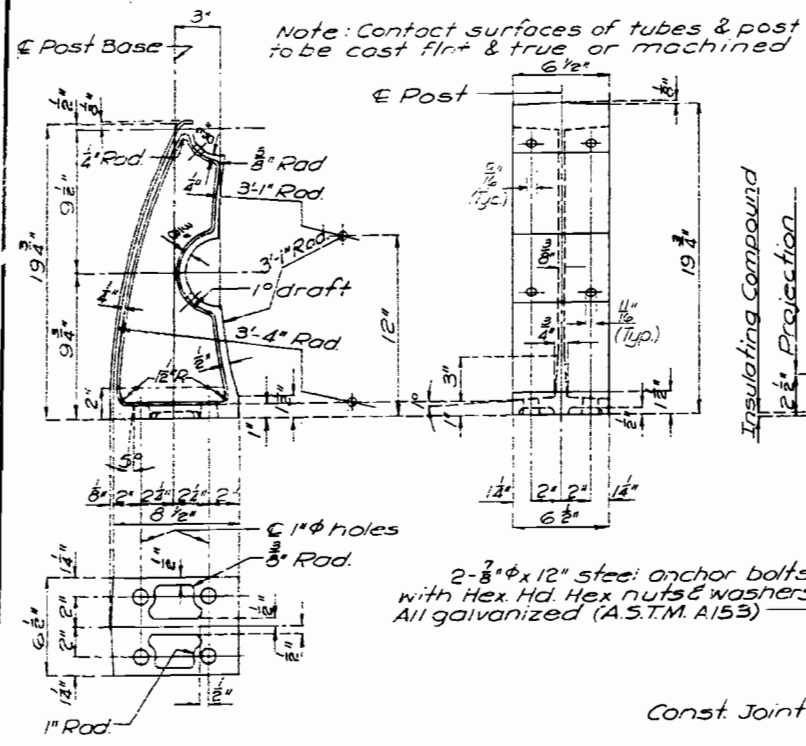 Note: Contact surfaces of tubes & post
to be cast flat & true or machined
3"
℄ Post Base
6 ½"
℄ Post
½"
⅛"
⅛"
¼" Rad.
⅜"
⅝" Rad
¼"
3'-1" Rad.
9 ½"
19 ¾"
⅜"
3'-1" Rad.
1° draft
9 ¾"
¼"
3'-4" Rad
½"
12"
½" R.
2"
1"
1 ½"
5°
(Typ.)
⅜"
11/16"
(Typ.)
¾"
3"
1°
1"
½"
1 ½"
19 ¾"
Insulating Compound
2 ½" Projection
⅛" 2" 2 ¼" 2 ¼" 2"
8 ½"
1 ¼" 2" 2" 1 ¼"
6 ½"
℄ 1" φ holes
Rad.
½"
1 ¼"
2"
6 ½"
2"
1 ¼"
½"
½"
½"
1" Rad.
2-⅞" φ x 12" steel anchor bolts
with Hex. Hd. Hex nuts & washers
All galvanized (A.S.T.M. A153)
Const. Joint